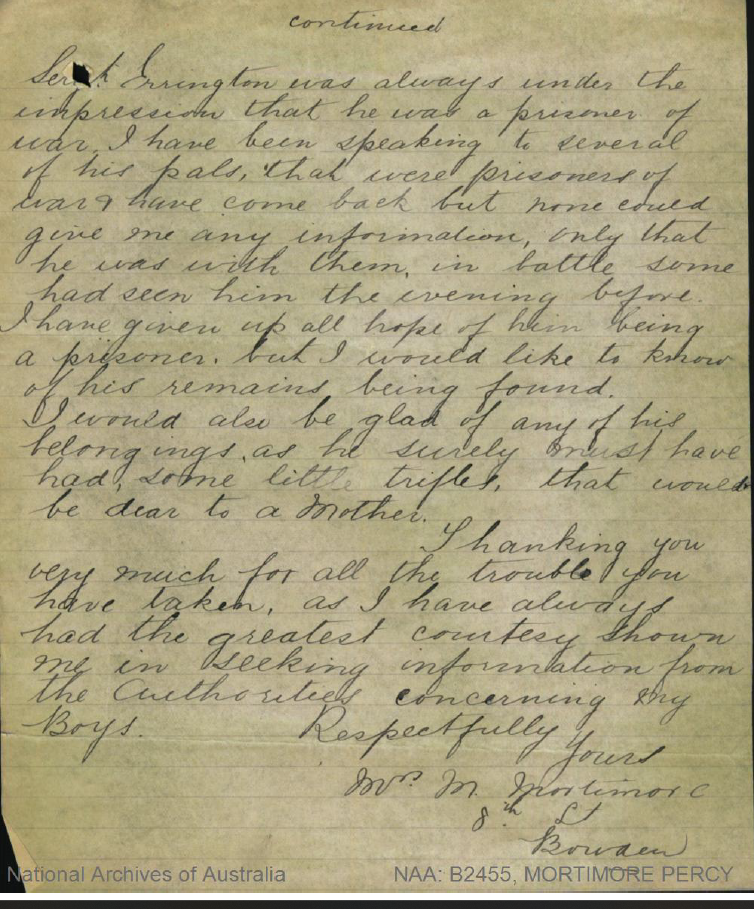 continued
Sergt. Errington was always under the
impression that he was a prisoner of
war. I have been speaking to several
of his pals, that were prisoners of
war & have come back but none could
give me any information, only that
he was with them, in battle some
had seen him the evening before.
I have given up all hope of him being
a prisoner. but I would like to know
of his remains being found.
I would also be glad of any of his
belongings, as he surely must have
had, some little trifles, that would
be dear to a Mother.
Thanking you
very much for all the trouble you
have taken, as I have always
had the greatest courtesy shown
me in seeking information from
the Authorities concerning my
Boys. Respectfully
Yours
Mrs M. Mortimore
8th St
Bowden
National Archives of Australia NAA: B2455, MORTIMORE PERCY